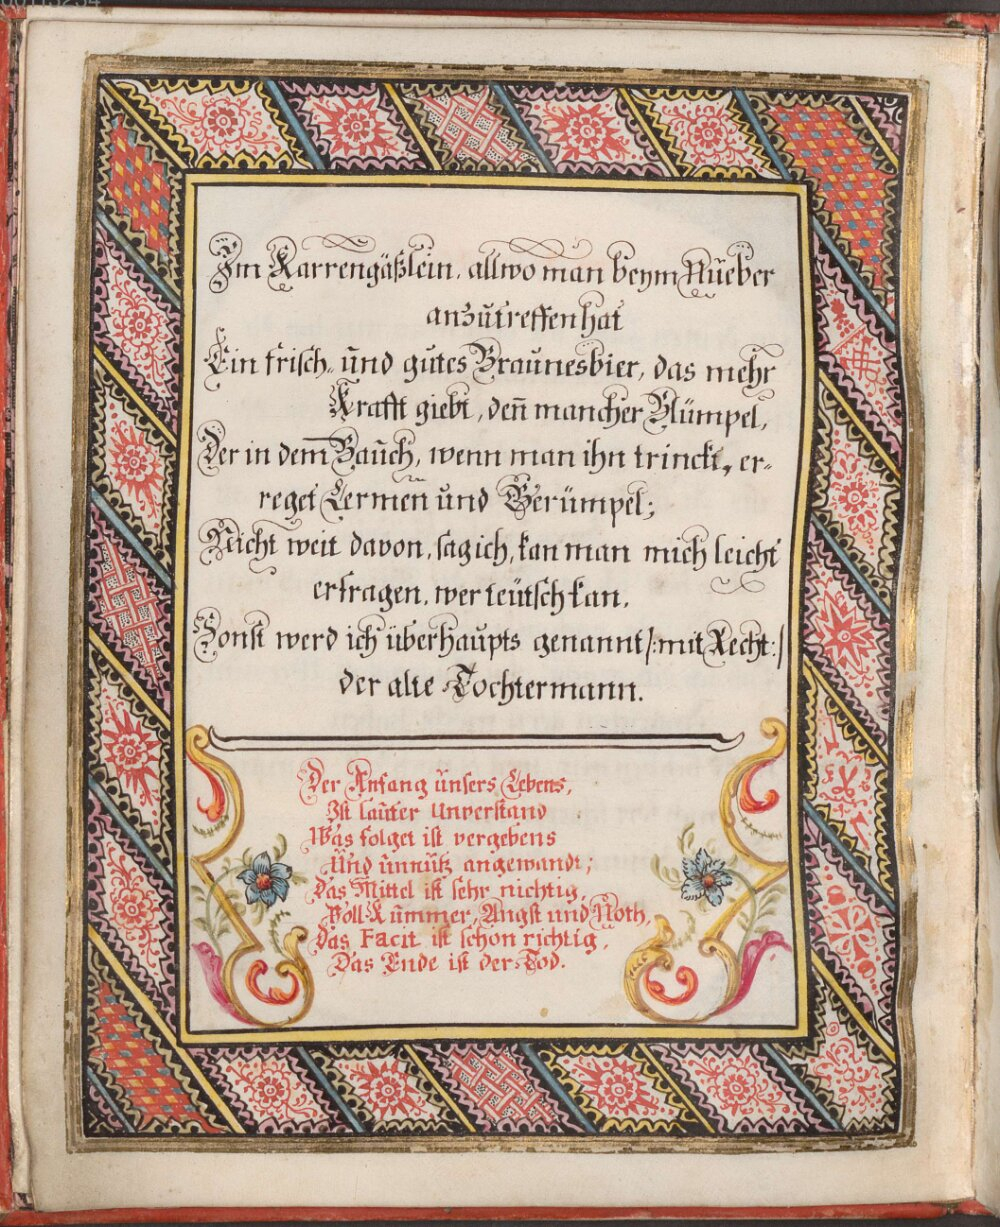 Im Karrengäßlein, allwo man beym Rüeber
anzutreffen hat
Ein frisch- und gutes Braunesbier, das mehr
Krafft giebt, deñ mancher Blümpel,
Der in dem Bauch, wenn man ihn trinckt, er-
reget Lermen und Gerümpel;
Nicht weit davon, sag ich, kan man mich leicht
erfragen, wer teutsch kan.
Sonst werd ich überhaupts genannt /: mit Recht :/
der alte Tochtermann.
Der Anfang unsers Lebens,
Ist lauter Unverstand
Was folget ist vergebens
Und unnütz angewandt,
Das Mittel ist sehr nichtig,
Voll Kummer, Angst und Noth,
Das Facit ist schon richtig,
Das Ende ist der Tod.